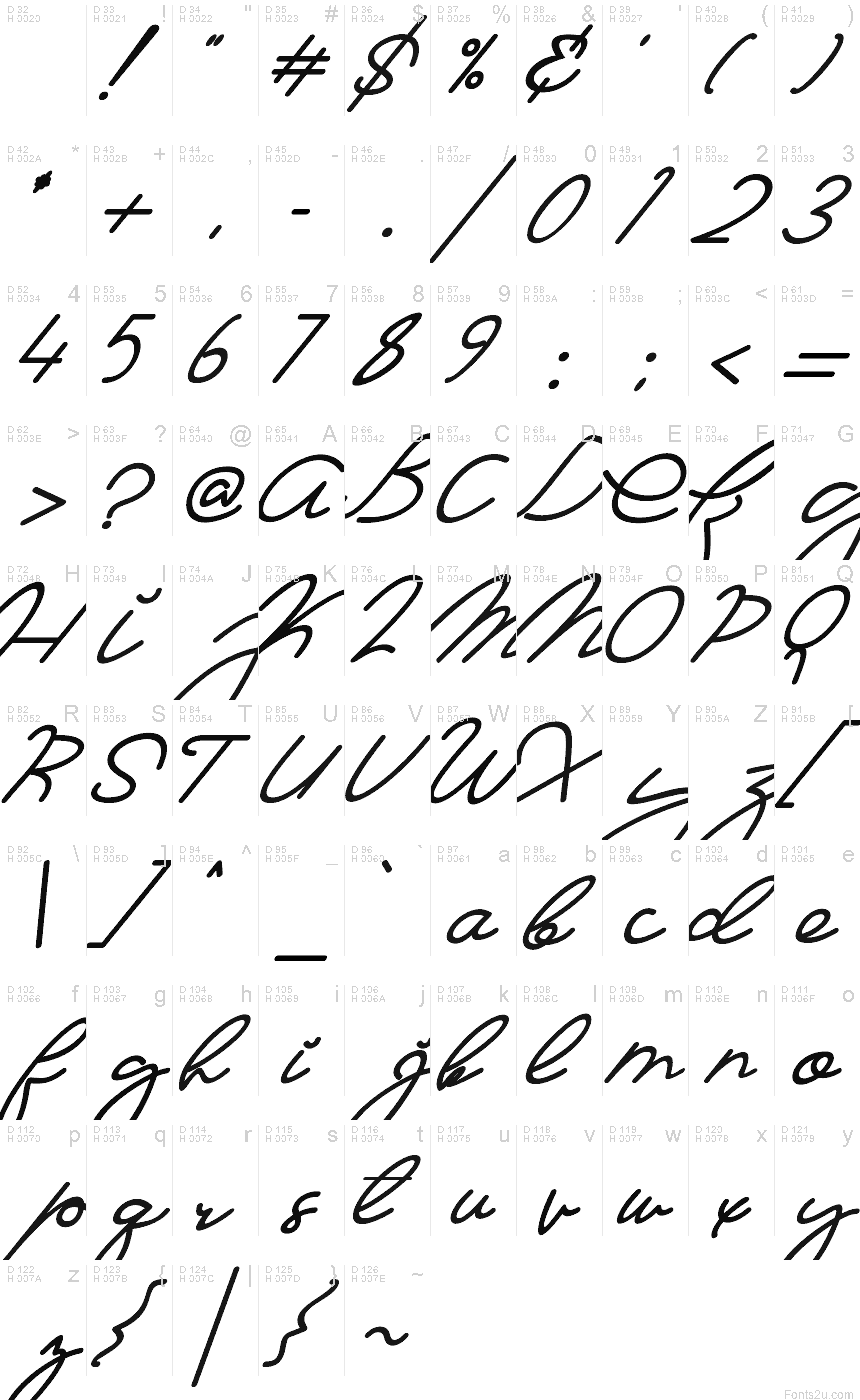 D 32 D 33 ! D 34 " D 35 # D 36 $ D 37 % D 38 & D 39 ' D 40 ( D 41 )
H 0020 H 0021 H 0022 H 0023 H 0024 H 0025 H 0026 H 0027 H 0028 H 0029
! " # $ % & ' ( )
D 42 * D 43 + D 44 , D 45 - D 46 . D 47 / D 48 0 D 49 1 D 50 2 D 51 3
H 002A H 002B H 002C H 002D H 002E H 002F H 0030 H 0031 H 0032 H 0033
* + , - . / 0 1 2 3
D 52 4 D 53 5 D 54 6 D 55 7 D 56 8 D 57 9 D 58 : D 59 ; D 60 < D 61 =
H 0034 H 0035 H 0036 H 0037 H 0038 H 0039 H 003A H 003B H 003C H 003D
4 5 6 7 8 9 : ; < =
D 62 > D 63 ? D 64 @ D 65 A D 66 B D 67 C D 68 D D 69 E D 70 F D 71 G
H 003E H 003F H 0040 H 0041 H 0042 H 0043 H 0044 H 0045 H 0046 H 0047
> ? @ A B C D E F G
D 72 H D 73 I D 74 J D 75 K D 76 L D 77 M D 78 N D 79 O D 80 P D 81 Q
H 0048 H 0049 H 004A H 004B H 004C H 004D H 004E H 004F H 0050 H 0051
H I J K L M N O P Q
D 82 R D 83 S D 84 T D 85 U D 86 V D 87 W D 88 X D 89 Y D 90 Z D 91 [
H 0052 H 0053 H 0054 H 0055 H 0056 H 0057 H 0058 H 0059 H 005A H 005B
R S T U V W X Y Z [
D 92 \ D 93 ] D 94 ^ D 95 _ D 96 ` D 97 a D 98 b D 99 c D 100 d D 101 e
H 005C H 005D H 005E H 005F H 0060 H 0061 H 0062 H 0063 H 0064 H 0065
\ ] ^ _ ` a b c d e
D 102 f D 103 g D 104 h D 105 i D 106 j D 107 k D 108 l D 109 m D 110 n D 111 o
H 0066 H 0067 H 0068 H 0069 H 006A H 006B H 006C H 006D H 006E H 006F
f g h i j k l m n o
D 112 p D 113 q D 114 r D 115 s D 116 t D 117 u D 118 v D 119 w D 120 x D 121 y
H 0070 H 0071 H 0072 H 0073 H 0074 H 0075 H 0076 H 0077 H 0078 H 0079
p q r s t u v w x y
D 122 z D 123 { D 124 | D 125 } D 126 ~
H 007A H 007B H 007C H 007D H 007E
z { | } ~
Fonts2u.com